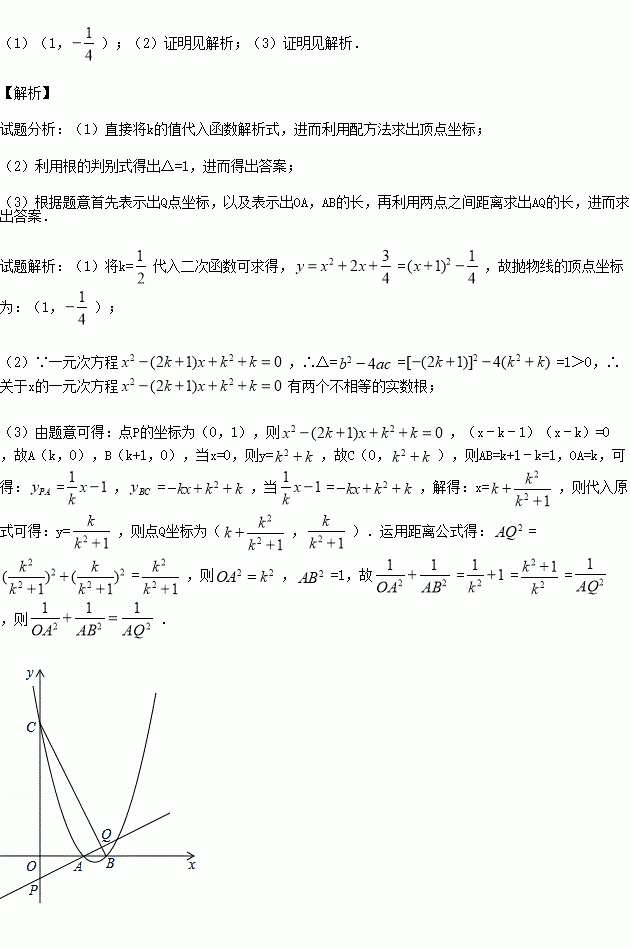 （1）（1，$-\frac{1}{4}$）；（2）证明见解析；（3）证明见解析．
【解析】
试题分析：（1）直接将k的值代入函数解析式，进而利用配方法求出顶点坐标；
（2）利用根的判别式得出△=1，进而得出答案；
（3）根据题意首先表示出Q点坐标，以及表示出OA，AB的长，再利用两点之间距离求出AQ的长，进而求
出答案．
试题解析：（1）将k=$\frac{1}{2}$代入二次函数可求得，$y=x^2+2x+\frac{3}{4}$=$(x+1)^2-\frac{1}{4}$，故抛物线的顶点坐标
为：（1，$-\frac{1}{4}$）；
（2）∵一元次方程$x^2-(2k+1)x+k^2+k=0$，∴△=$b^2-4ac$=$[-(2k+1)]^2-4(k^2+k)$=1＞0，∴
关于x的一元次方程$x^2-(2k+1)x+k^2+k=0$有两个不相等的实数根；
（3）由题意可得：点P的坐标为（0，1），则$x^2-(2k+1)x+k^2+k=0$，（x﹣k﹣1）（x﹣k）=0
，故A（k，0），B（k+1，0），当x=0，则y=$k^2+k$，故C（0，$k^2+k$），则AB=k+1﹣k=1，OA=k，可
得：$y_{PA}$=$\frac{1}{k}x-1$，$y_{BC}$=$-kx+k^2+k$，当$\frac{1}{k}x-1$=$-kx+k^2+k$，解得：x=$k+\frac{k^2}{k^2+1}$，则代入原
式可得：y=$\frac{k}{k^2+1}$，则点Q坐标为（$k+\frac{k^2}{k^2+1}$，$\frac{k}{k^2+1}$）．运用距离公式得：$AQ^2$=
$(\frac{k^2}{k^2+1})^2+(\frac{k}{k^2+1})^2$=$\frac{k^2}{k^2+1}$，则$OA^2=k^2$，$AB^2$=1，故$\frac{1}{OA^2}+\frac{1}{AB^2}$=$\frac{1}{k^2}+1$=$\frac{k^2+1}{k^2}$=$\frac{1}{AQ^2}$
，则$\frac{1}{OA^2}+\frac{1}{AB^2}=\frac{1}{AQ^2}$．
y
C
Q
O A B x
P